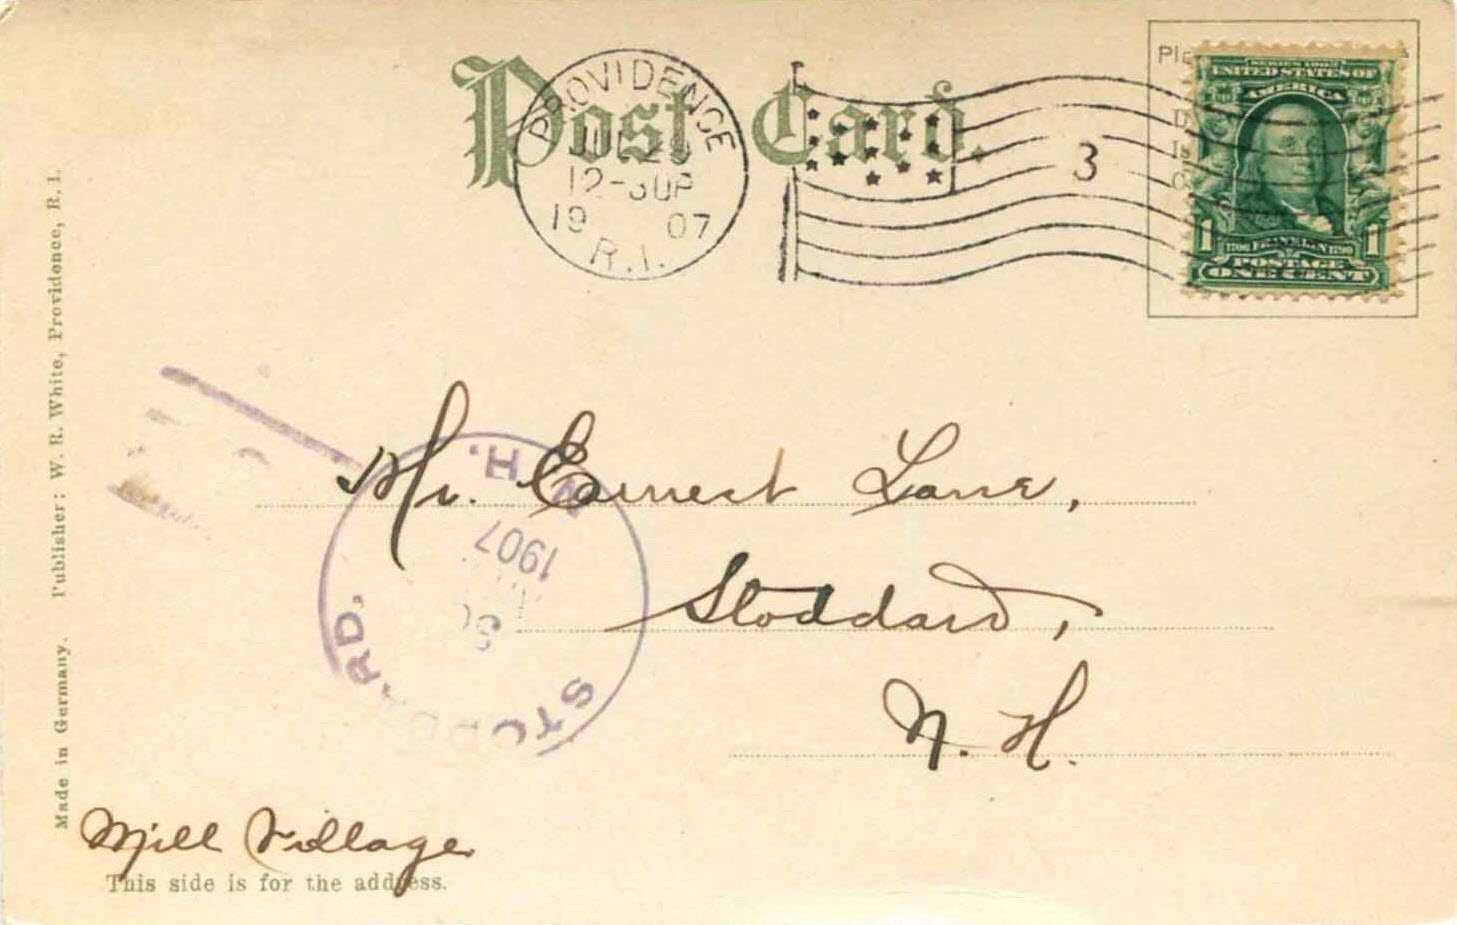 Post Card.
PROVIDENCE
JUL 29
12-30P
1907
R.I.
3
SERIES 1902
UNITED STATES OF
AMERICA
1706 FRANKLIN 1790
1 POSTAGE 1
ONE CENT
Made in Germany. Publisher: W. R. White, Providence, R. I.
Mr. Ernest Lane,
Stoddard,
N. H.
STODDARD, N.H.
1907
Mill Village
This side is for the address.